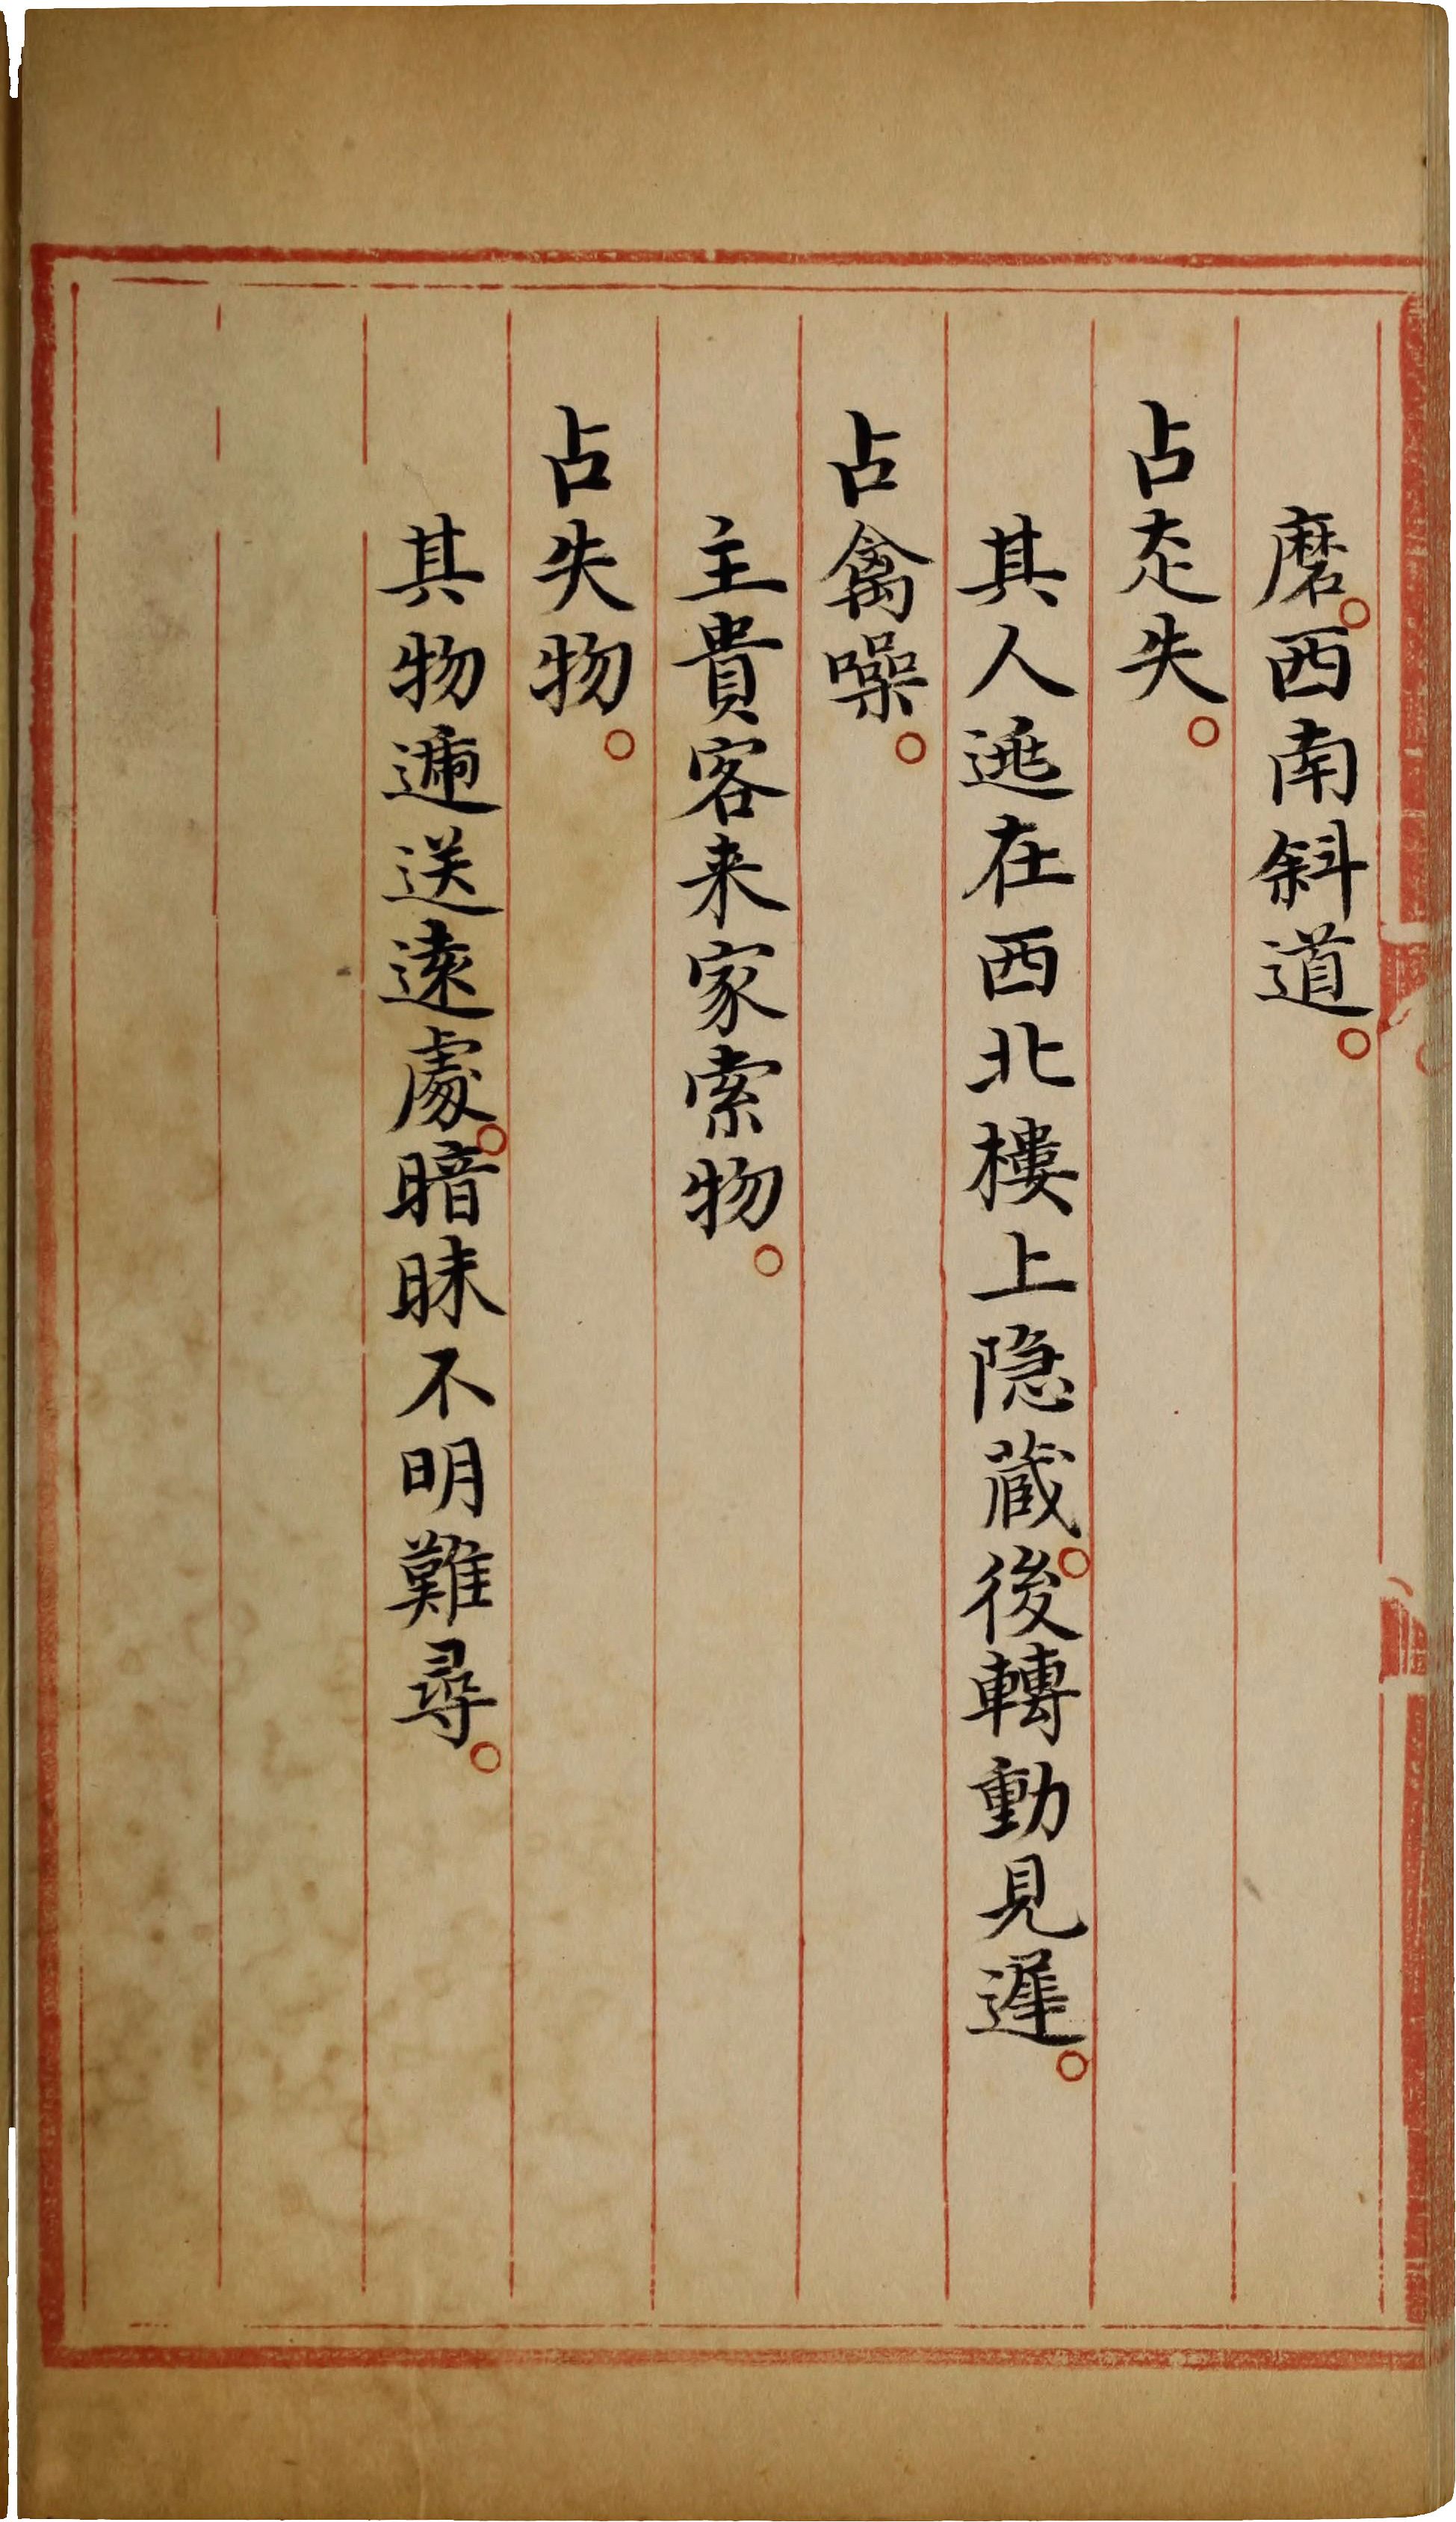 磨。西南斜道。
占走失。
其人逃在西北樓上隐蔵。後轉動見遲。
占禽噪。
主貴客来家索物。
占失物。
其物遞送遠處。暗昧不明難尋。